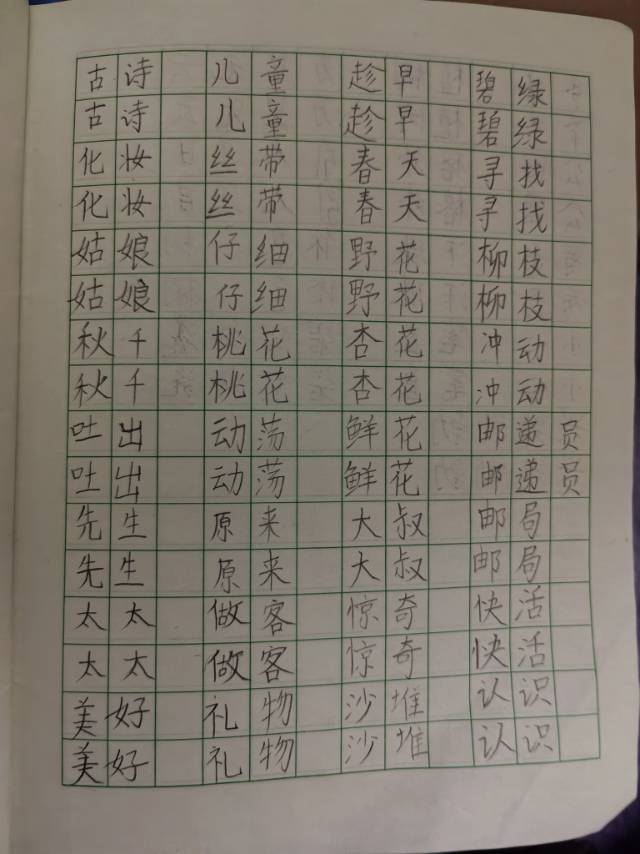 古诗 儿童 趁早 碧绿
古诗 儿童 趁早 碧绿
化妆 丝带 春天 寻找
化妆 丝带 春天 寻找
姑娘 仔细 野花 柳枝
姑娘 仔细 野花 柳枝
秋千 桃花 杏花 冲动
秋千 桃花 杏花 冲动
吐出 动荡 鲜花 邮递员
吐出 动荡 鲜花 邮递员
先生 原来 大叔 邮局
先生 原来 大叔 邮局
太太 做客 惊奇 快活
太太 做客 惊奇 快活
美好 礼物 沙堆 认识
美好 礼物 沙堆 认识